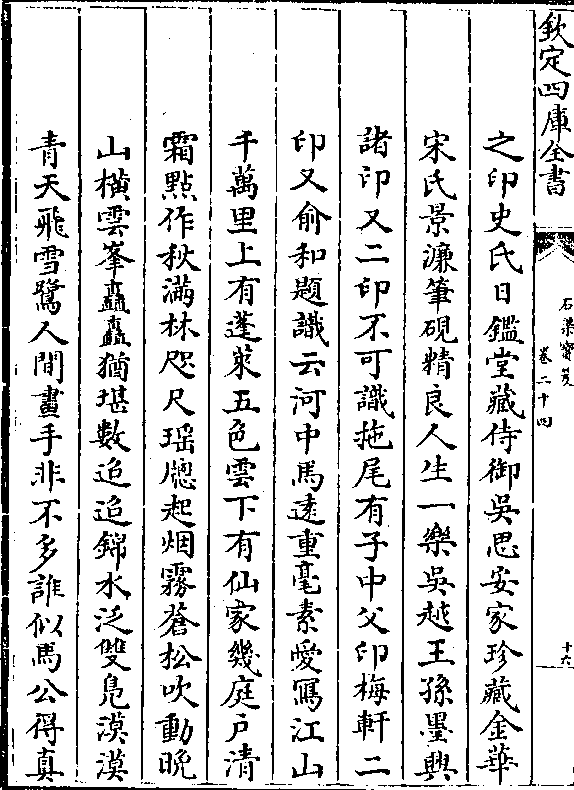 欽定四庫全書
石渠寶笈
卷二十四
十六
之印史氏日鑑堂藏侍御吳思安家珍藏金華
宋氏景濂筆硯精良人生一樂吳越王孫墨興
諸印又二印不可識拖尾有子中父印梅軒二
印又俞和題識云河中馬遠重毫素愛寫江山
千萬里上有蓬萊五色雲下有仙家幾庭户清
霜點作秋滿林咫尺瑶牕起烟霧蒼松吹動晚
山横雲峯矗矗猶堪數迢迢錦水泛雙鳧漠漠
青天飛雪鷺人間畫手非不多誰似馬公得真